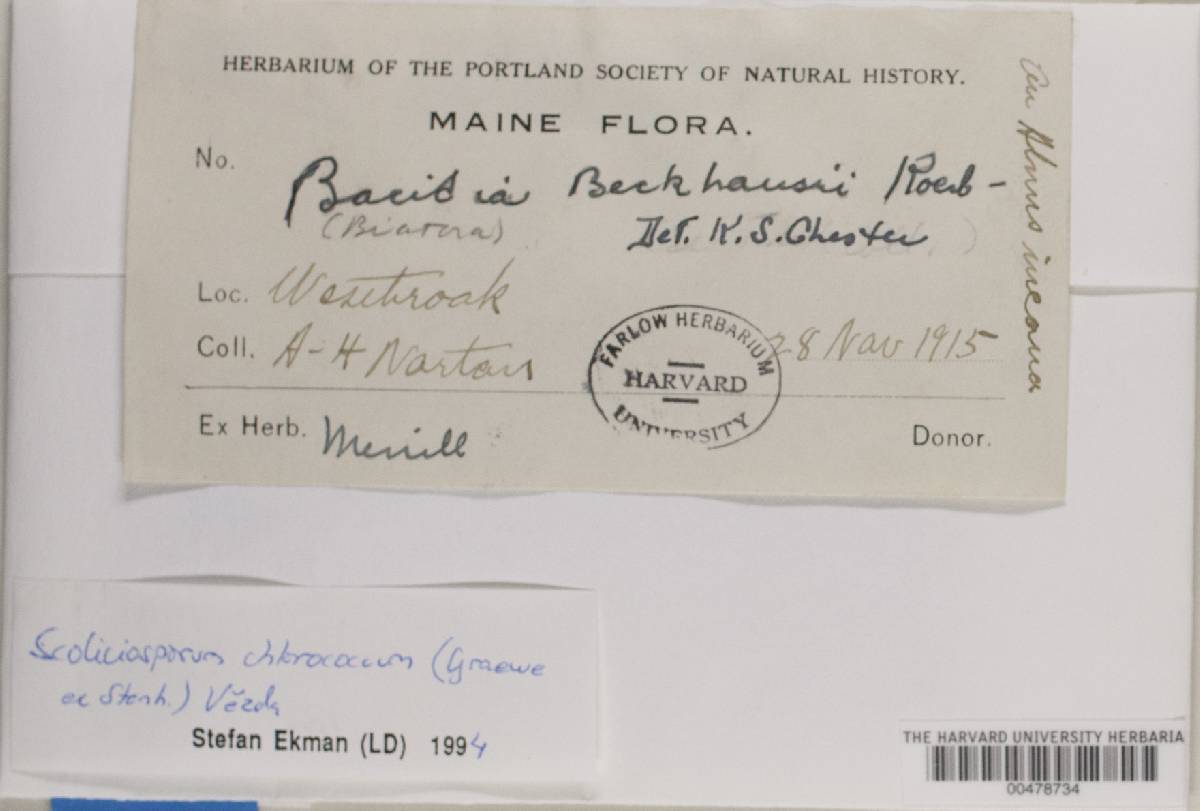 HERBARIUM OF THE PORTLAND SOCIETY OF NATURAL HISTORY.
MAINE FLORA.
No. Bacidia Beckhausii Koerb-
(Biatora) Det. K. S. Chester
Loc. Westbrook
Coll. A-H Norton 28 Nov 1915
Ex Herb. Merrill Donor.
on Alnus incana
FARLOW HERBARIUM
HARVARD
UNIVERSITY
Scoliciosporum chlorococcum (Graewe
ex Stenh.) Vězda
Stefan Ekman (LD) 1994
THE HARVARD UNIVERSITY HERBARIA
00478734